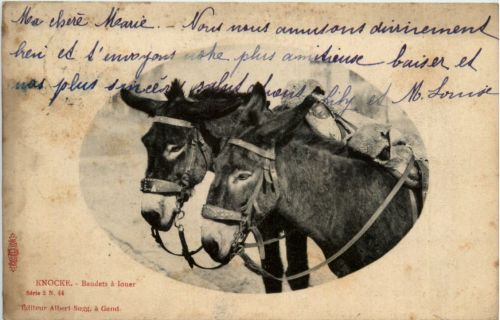 Ma chère Marie - Nous nous amusons divinement
ici et t'envoyons notre plus amitieuse baiser et
nos plus sincères salut avant et M. Louise
KNOCKE. - Baudets à louer
Série 2 N. 44
Éditeur Albert Sugg, à Gand.